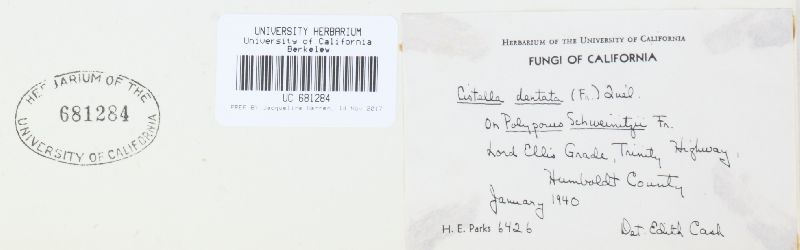 HERBARIUM OF THE
681284
UNIVERSITY OF CALIFORNIA
UNIVERSITY HERBARIUM
University of California
Berkeley
UC 681284
PREP BY Jacqueline Warren, 14 Nov 2017
HERBARIUM OF THE UNIVERSITY OF CALIFORNIA
FUNGI OF CALIFORNIA
Cistella dentata (Fr.) Quél.
On Polyporus Schweinitzii Fr.
Lord Ellis Grade, Trinity Highway,
Humboldt County
January 1940
H. E. Parks 6426 Det Edith Cash